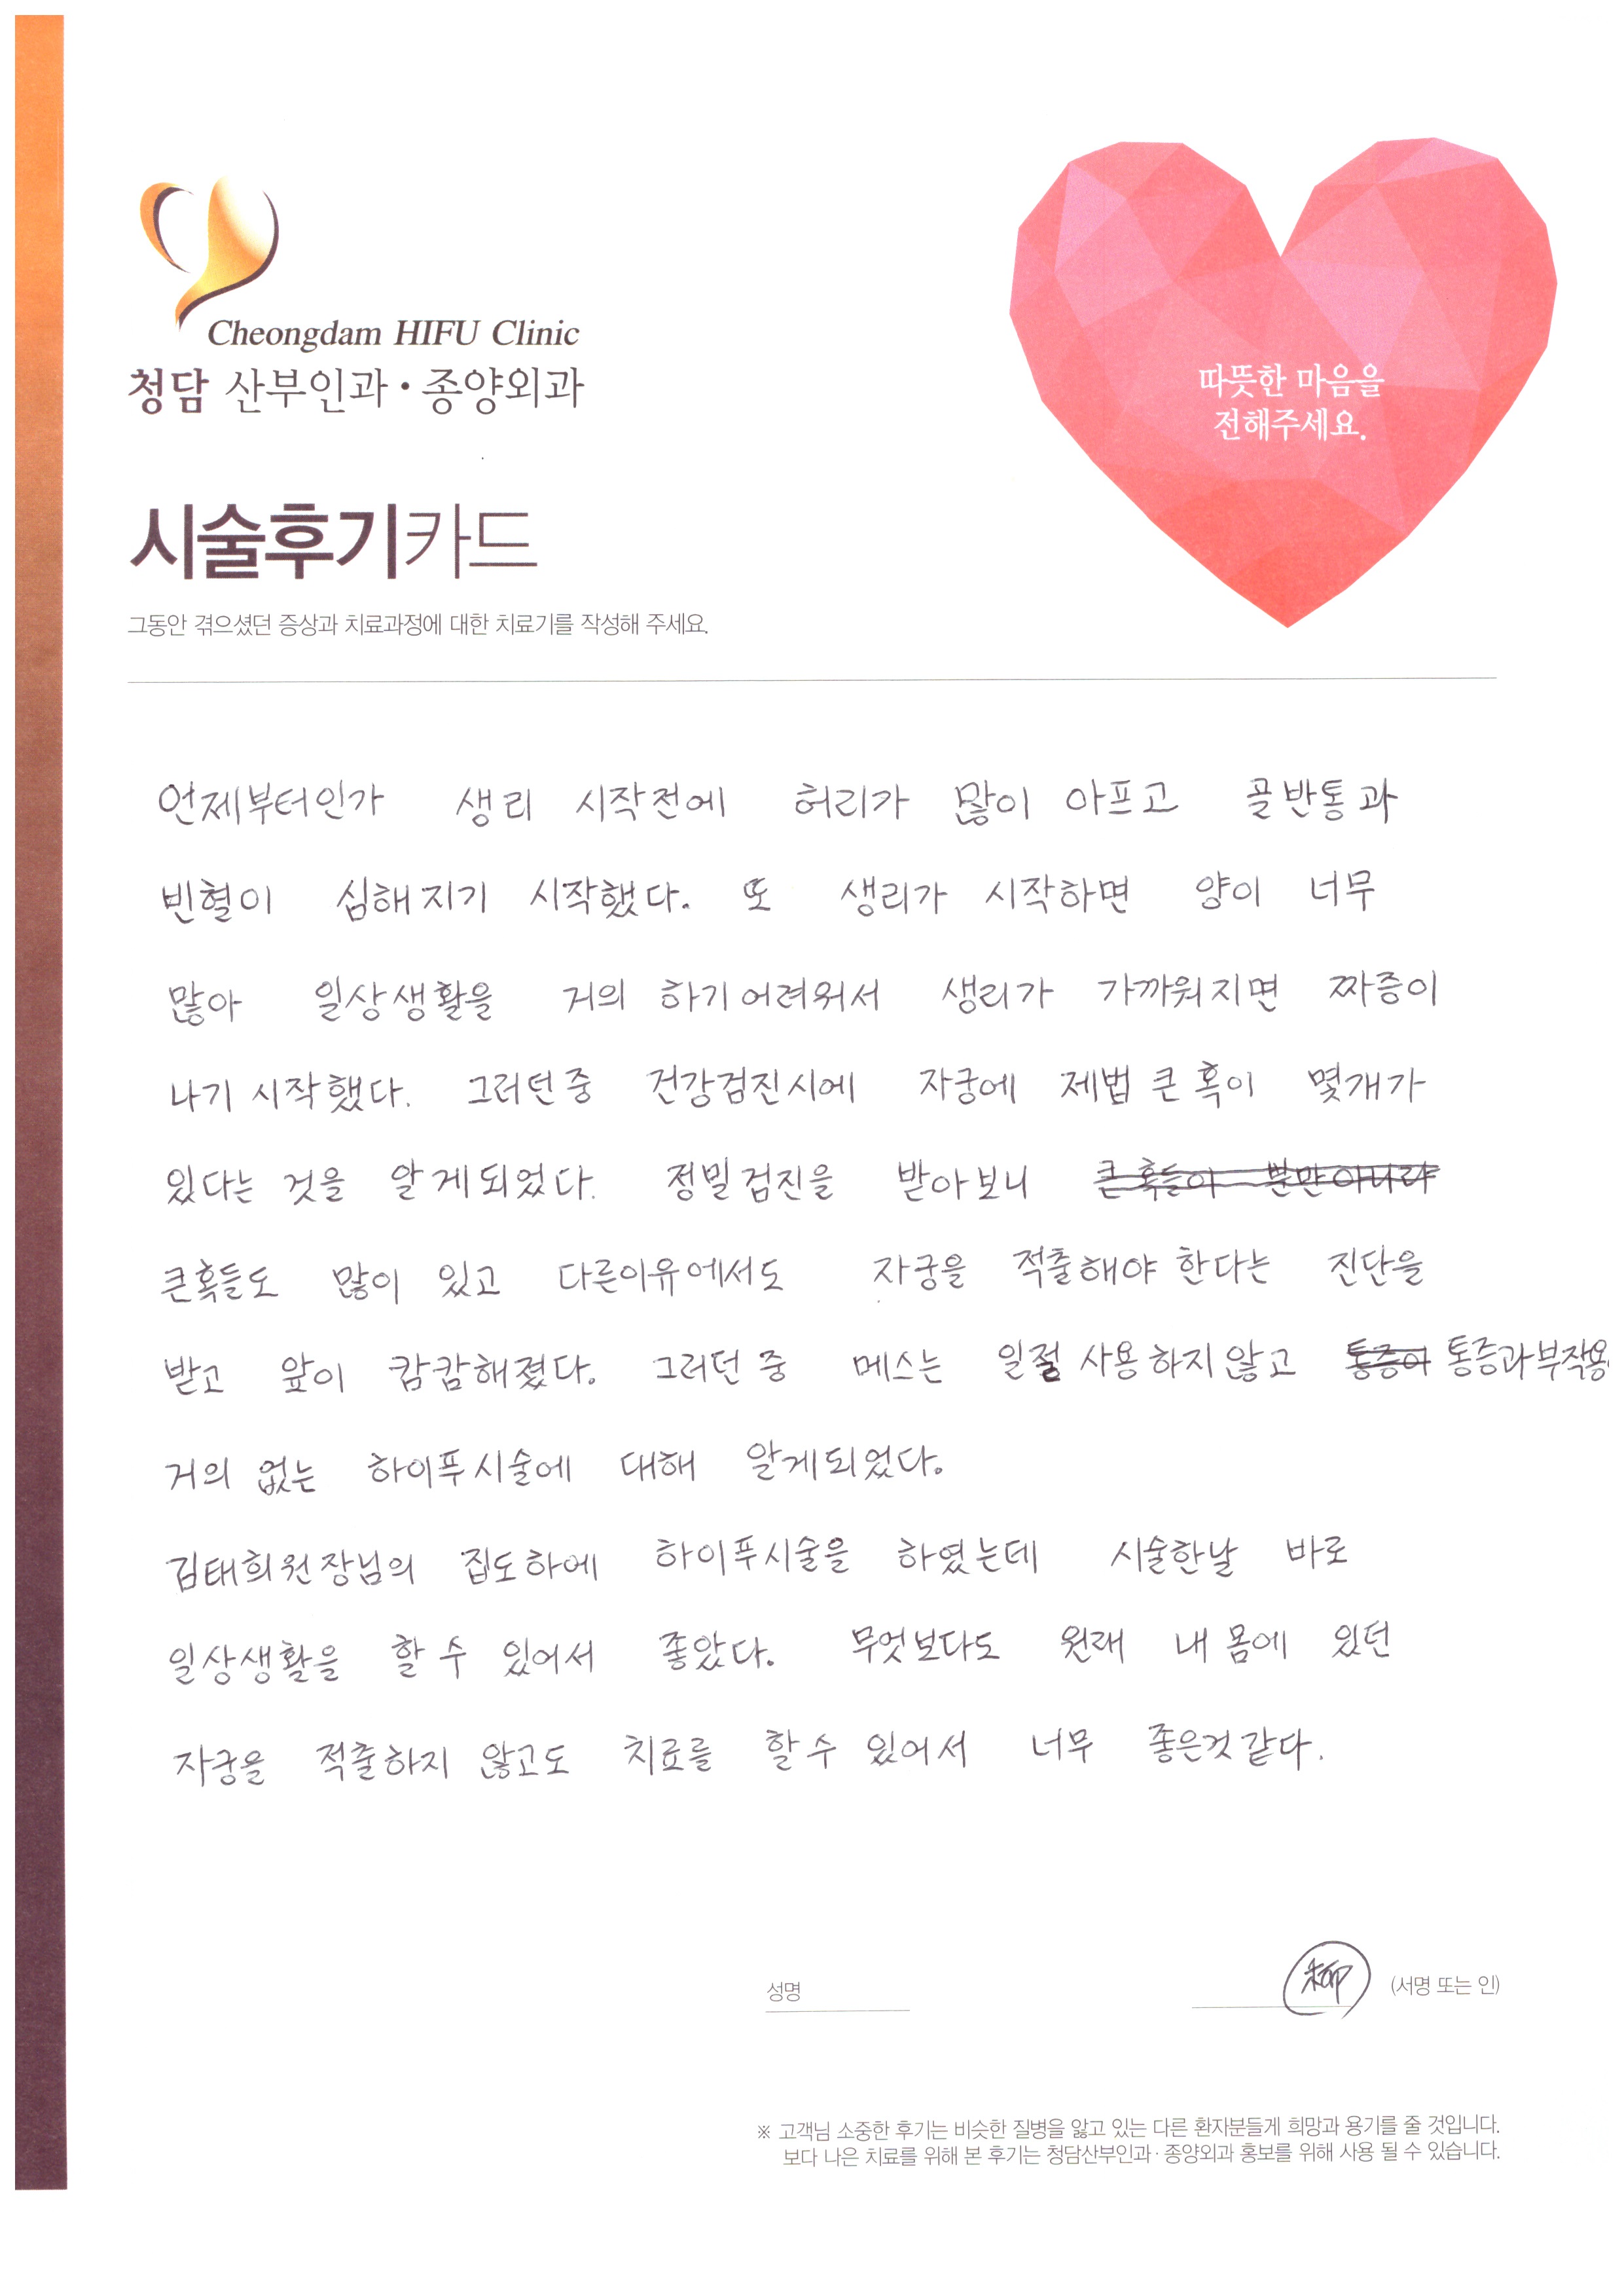 Cheongdam HIFU Clinic
청담 산부인과·종양외과
따뜻한 마음을
전해주세요.
시술후기카드
그동안 겪으셨던 증상과 치료과정에 대한 치료기를 작성해 주세요.
언제부터인가 생리 시작전에 허리가 많이 아프고 골반통과
빈혈이 심해지기 시작했다. 또 생리가 시작하면 양이 너무
많아 일상생활을 거의 하기어려워서 생리가 가까워지면 짜증이
나기 시작했다. 그러던중 건강검진시에 자궁에 제법 큰 혹이 몇개가
있다는 것을 알게되었다. 정밀검진을 받아보니 큰혹들이 뿐만아니라
큰혹들도 많이 있고 다른이유에서도 자궁을 적출해야 한다는 진단을
받고 앞이 캄캄해졌다. 그러던 중 메스는 일절 사용하지않고 통증이 통증과부작용
거의 없는 하이푸시술에 대해 알게되었다.
김태희원장님의 집도하에 하이푸시술을 하였는데 시술한날 바로
일상생활을 할 수 있어서 좋았다. 무엇보다도 원래 내 몸에 있던
자궁을 적출하지 않고도 치료를 할 수 있어서 너무 좋은것같다.
성명 柳 (서명 또는 인)
※ 고객님 소중한 후기는 비슷한 질병을 앓고 있는 다른 환자분들게 희망과 용기를 줄 것입니다.
보다 나은 치료를 위해 본 후기는 청담산부인과·종양외과 홍보를 위해 사용 될 수 있습니다.